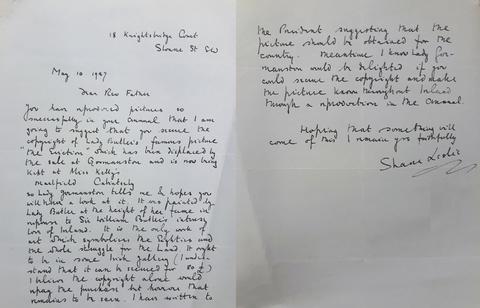 18 Knightsbridge Court
Sloane St SW
May 10 1947
Dear Rev Father
You have reproduced pictures so
successfully in your Annual that I am
going to suggest that you secure the
copyright of Lady Butler's famous picture
"The Eviction" which has been displaced by
the sale at Gormanston and is now being
kept at Miss Kelly's
Cabinteely
so Lady Gormanston tells me & hopes you
will have a look at it. It was painted by
Lady Butler at the height of her fame in
response to Sir William Butler's intense
love of Ireland. It is the only work of
art which symbolises the Eviction and
the whole struggle for the Land. It ought
to be in some Irish gallery (I under-
stand that it can be secured for 80 £)
I believe the copyright alone would
repay the purchase but however that
remains to be seen. I have written to
the President suggesting that the
picture should be obtained for the
country. Meantime I know Lady Gor-
manston would be delighted if you
could secure the copyright and make
the picture known throughout Ireland
through a reproduction in the Annual.
Hoping that something will
come of this I remain yrs faithfully
Shane Leslie